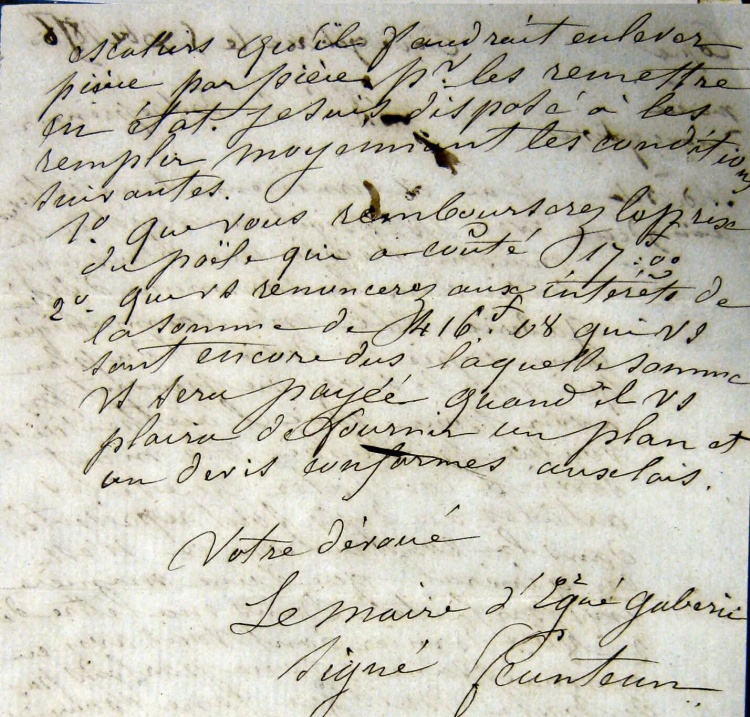 escaliers qu'il faudrait enlever
pièce par pièce pr les remettre
en état. je suis disposé à les
remplir moyennant les conditions
suivantes.
1o que vous rembourserez le prix
du poële qui a coûté 17 f 00
2o que vs renoncerez aux intérêts de
la somme de 416 f 08 qui vs
sont encore dus laquelle somme
vs sera payée quand il vs
plaira de fournir un plan et
un devis conformes aux lois.
Votre dévoué
Le maire d'Ergué gabéric
signé